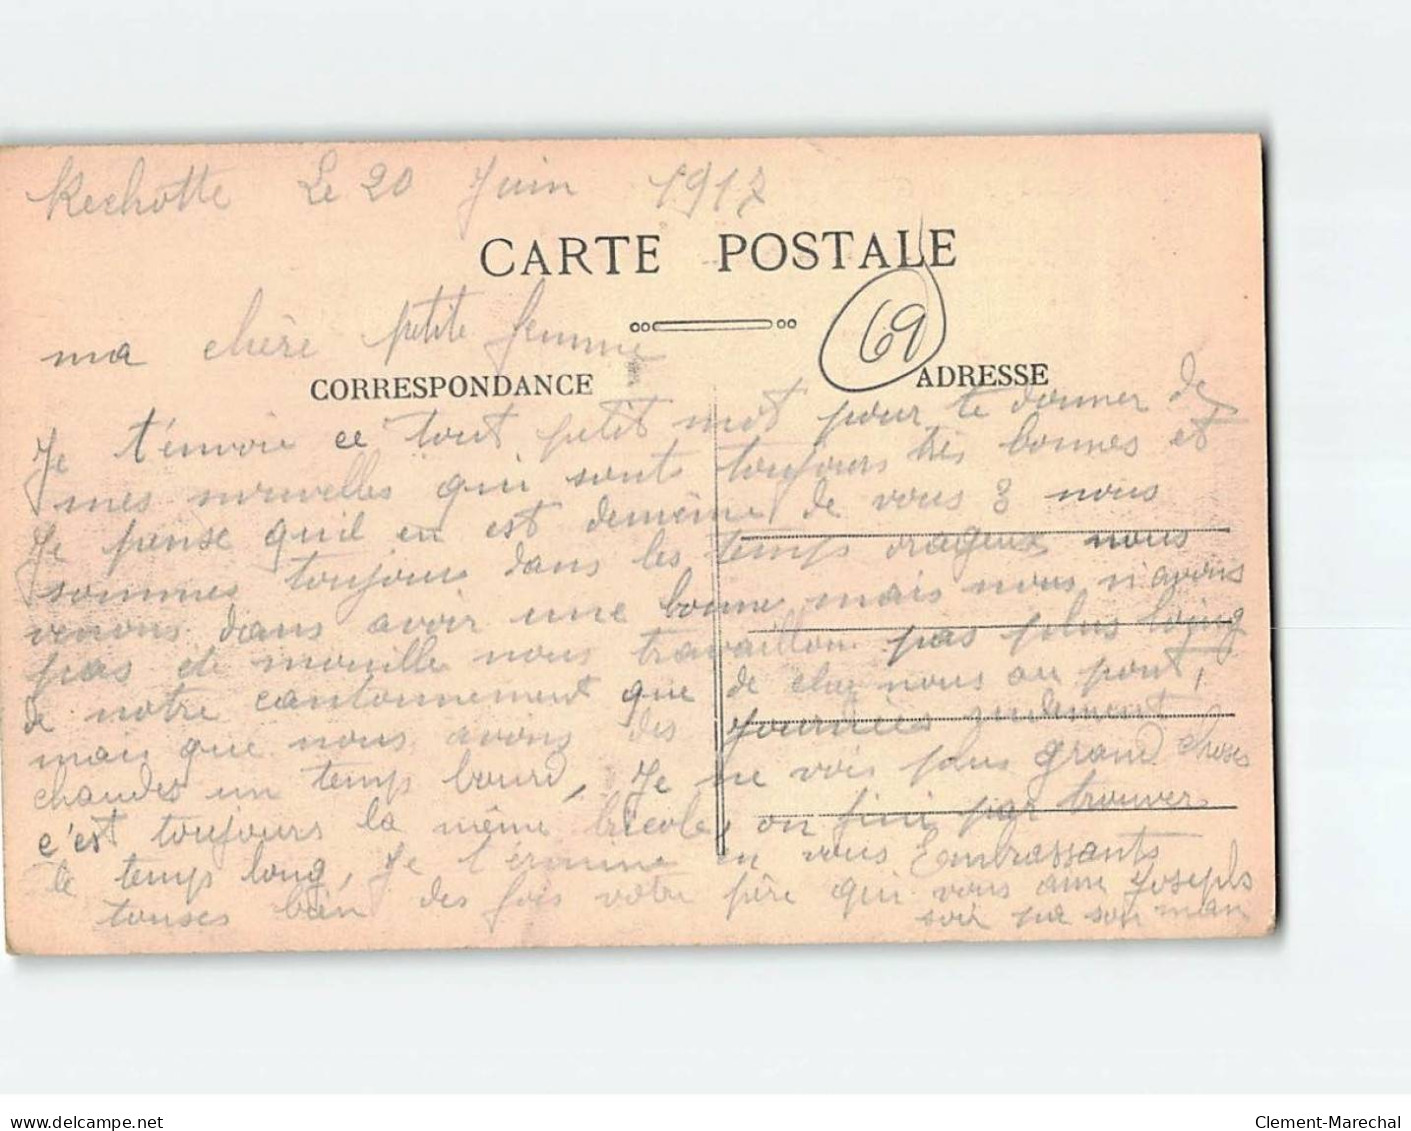 Rechotte Le 20 Juin 1917
CARTE POSTALE
69
ma chère petite femme
CORRESPONDANCE
ADRESSE
Je t'envoie ce tout petit mot pour te donner de
mes nouvelles qui sont toujours très bonnes et
Je pense quil en est demême de vous 3 nous
sommes toujours dans les temps orageux nous
venons dans avoir une bonne mais nous n'avons
pas été mouille nous travaillon pas plus loing
de notre cantonnement que de chez nous au pont,
mais que nous avons des journées rudement
chaudes un temp lourd, Je ne vois plus grand choses
c'est toujours la même bricole, on fini par trouver
le temp long, Je termine en vous Embrassants
touses bien des fois votre père qui vous aime Joseph
soir par son man
delcampe.net
Clement-Marechal